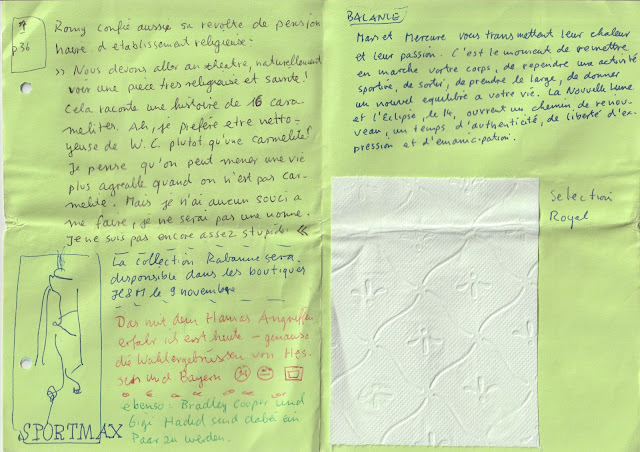 p36
Romy confie aussie sa revolte de pension
naire d'etablissement religieuse:
» Nous devons aller au theatre, naturellement
voir une piece tres religieuse et sainte!
Cela raconte une histoire de 16 cara-
melites. Ah, je préfère etre netto-
yeuse de W.C. plutot qu'une carmelite!
Je pense qu'on peut mener une vie
plus agreable quand on n'est pas car-
melite. Mais je n'ai aucun souci a
me faire, je ne serai pas une nonne.
Je ne suis pas encore assez stupide. «
La collection Rabanne sera
disponible dans les boutiques
H&M le 9 novembre
Das mit dem Hamas Angriffen
erfahr ich erst heute - genauso
die Wahlergebnissen von Hes-
sen und Bayern
ebenso: Bradley Cooper und
Gigi Hadid sind dabei ein
Paar zu werden.
SPORTMAX
BALANCE
Mars et Mercure vous transmettent leur chaleur
et leur passion. C'est le moment de remettre
en marche vortre corps, de rependre una activité
sportive, de sortir, de prendre le large, de donner
un nouvel equilibre a votre vie. La Nouvelle Lune
et l'Eclipse, le 14, ouvrent un chemin de renou-
veau, un temps d'authenticité, de liberté d'ex-
pression et d'emancipation.
Selection
Royal